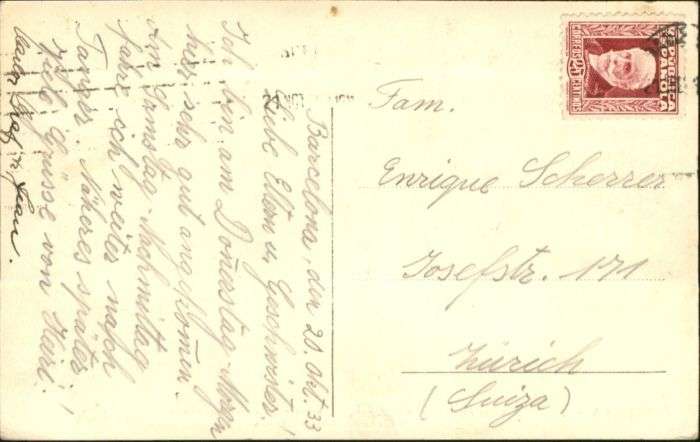 Barcelona, den 20. Okt. 33
Liebe Eltern u. Geschwister!
Ich bin am Donnestag Morgen
hier sehr gut angekommen.
Am Samstag Nachmittag
fahre ich weiter nach
Tanger. Näheres später.
Viele Grüsse von Karl!
Graf
Fam.
Enrique Scherrer
Josefstr. 171
Zürich
(Suiza)
REPUBLICA
ESPAÑOLA
CORREOS 25 CENTIMOS